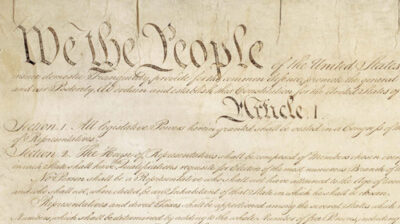 We the People of the United States
insure domestic Tranquility, provide for the common defence, promote the general
and our Posterity, do ordain and establish this Constitution for the United States of
Article. I.
Section. 1. All legislative Powers herein granted shall be vested in a Congress of the
of Representatives.
Section. 2. The House of Representatives shall be composed of Members chosen every
in each State shall have Qualifications requisite for Electors of the most numerous Branch of the
No Person shall be a Representative who shall not have attained to the Age of
and who shall not, when elected, be an Inhabitant of that State in which he shall be chosen.
Representatives and direct Taxes shall be apportioned among the several States which
Numbers, which shall be determined by adding to the whole Number of free Persons, including